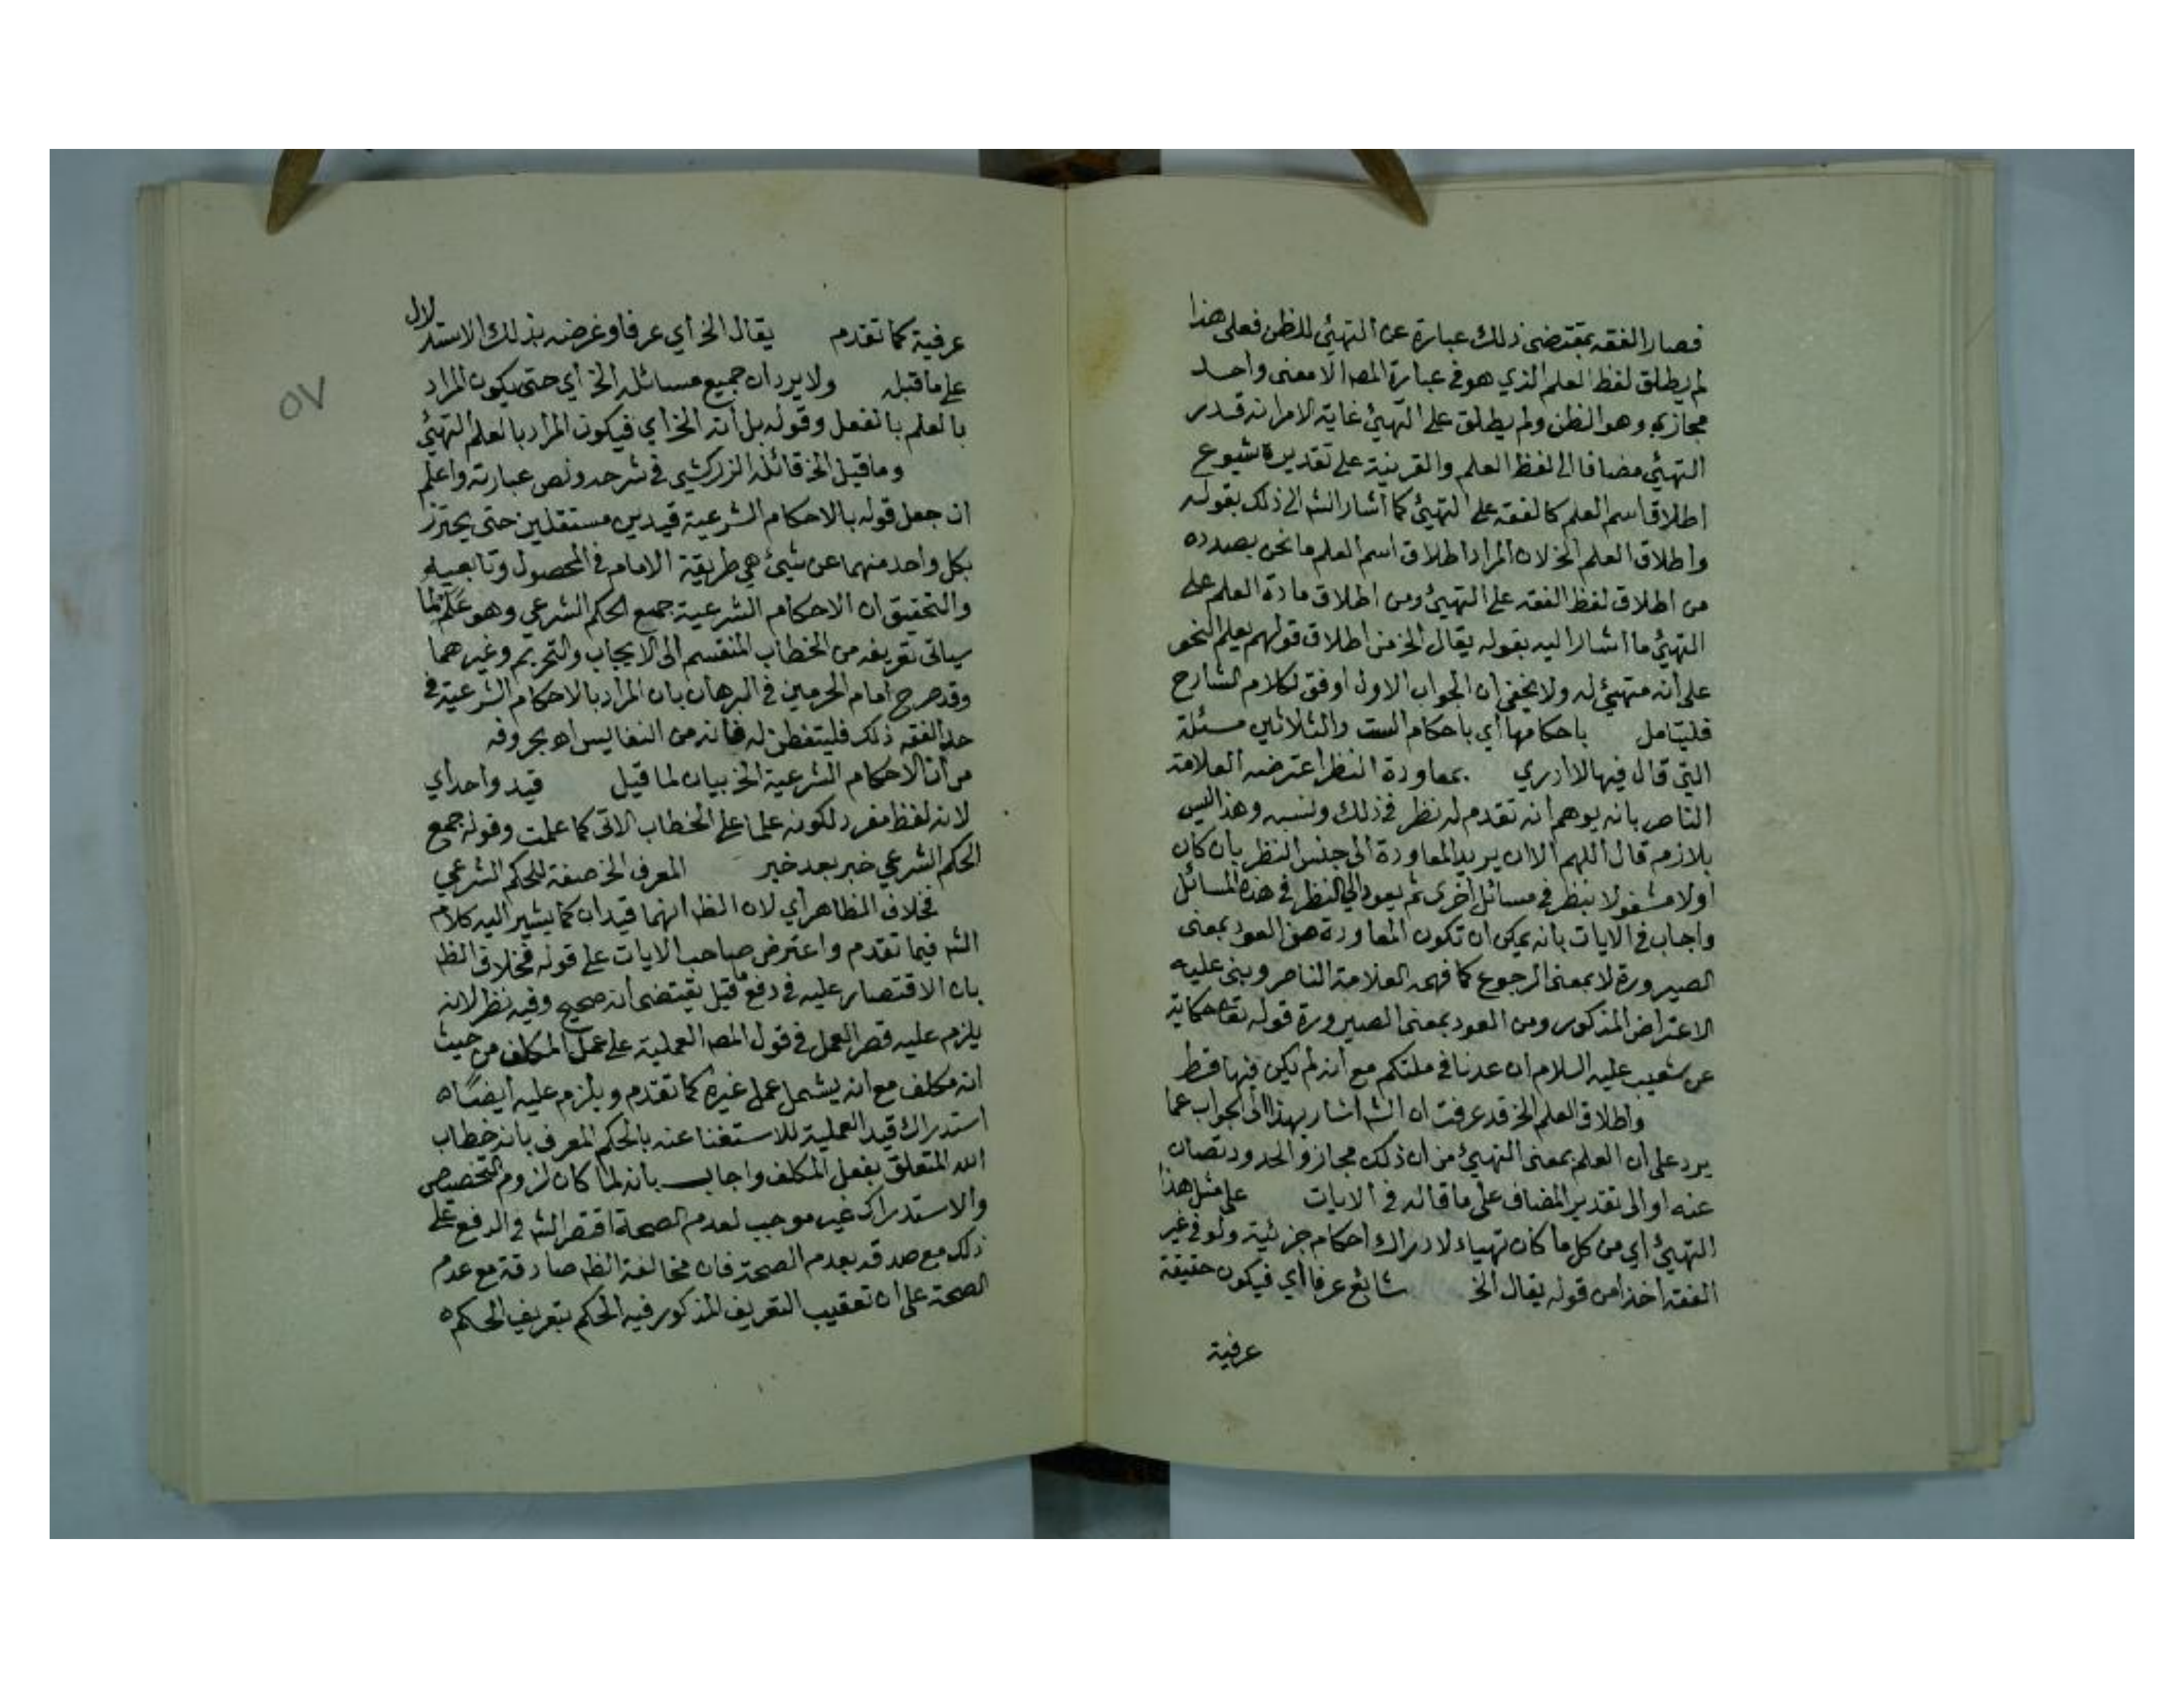 فصار الفقه بمقتضى ذلك عبارة عن التهيئ للظن فعلى هذا
لم يطلق لفظ العلم الذي هو في عبارة المصـ الا معنى واحد
مجازي وهو الظن ولم يطلق على التهيئ غاية الامر انه قدر
التهيئ مضافا الى لفظ العلم والقرينة على تقديره شيوع
اطلاق اسم العلم كالفقه على التهيئ كما اشار الشـ الى ذلك بقوله
واطلاق العلم الخ لان المراد اطلاق اسم العلم ما نحن بصدده
من اطلاق لفظ الفقه على التهيئ ومن اطلاق مادة العلم على
التهيئ ما اشار اليه بقوله يقال الخ من اطلاق قولهم يعلم النحو
على انه متهيئ له ولا يخفى ان الجواب الاول اوفق لكلام الشارح
فليتامل باحكامها اي باحكام الست والثلاثين مسئلة
التي قال فيها لا ادري بمعاودة النظر اعترضه العلامة
الناصر بانه يوهم انه تقدم له نظر في ذلك ونسيه وهذا ليس
بلازم قال اللهم الا ان يريد المعاودة الى جنس النظر بان كان
اولا مشغولا بنظر في مسائل اخرى ثم يعود الى النظر في هذه المسائل
واجاب في الايات بانه يمكن ان تكون المعاودة من العود بمعنى
الصيرورة لا بمعنى الرجوع كما فهمه العلامة الناصر وبنى عليه
الاعتراض المذكور ومن العود بمعنى الصيرورة قوله تعا حكاية
عن شعيب عليه السلام ان عدنا في ملتكم مع انه لم يكن فيها قط
واطلاق العلم الخ قد عرفت ان الشـ اشار بهذا الى الجواب عما
يرد على ان العلم بمعنى التهيئ من ان ذلك مجاز والحدود تصان
عنه او الى تقدير المضاف على ما قاله في الايات على مثل هذا
التهيئ اي من كل ما كان تهياء لادراك احكام جزئية ولو في غير
الفقه اخذا من قوله يقال الخ شائع عرفا اي فيكون حقيقة
عرفية
٥٧
عرفية كما تقدم يقال الخ اي عرفا وغرضه بذلك الاستدلال
على ما قبله ولا يرد ان جميع مسائله الخ اي حتى يكون المراد
بالعلم بالفعل وقوله بل انه الخ اي فيكون المراد بالعلم التهيئ
وما قيل الخ قائله الزركشي في شرحه ونص عبارته واعلم
ان جعل قوله بالاحكام الشرعية قيدين مستقلين حتى يحترز
بكل واحد منهما عن شيئ هي طريقة الامام في المحصول وتابعيه
والتحقيق ان الاحكام الشرعية جميع الحكم الشرعي وهو علم لما
سياتى تعريفه من الخطاب المنقسم الى الايجاب والتحريم وغيرهما
وقد صرح امام الحرمين في البرهان بان المراد بالاحكام الشرعية في
حد الفقه ذلك فليتفطن له فانه من النفايس اه بحروفه
من ان الاحكام الشرعية الخ بيان لما قيل قيد واحد اي
لانه لفظ مفرد لكونه علما على الخطاب الاتى كما علمت وقوله جمع
الحكم الشرعي خبر بعد خبر المعرف الخ صفة للحكم الشرعي
فخلاف الظاهر اي لان الظـ انهما قيدان كما يشير اليه كلام
الشـ فيما تقدم واعترض صاحب الايات على قوله فخلاف الظـ
بان الاقتصار عليه في دفع ما قيل يقتضى انه صحيح وفيه نظر لانه
يلزم عليه قصر العمل في قول المصـ العملية على عمل المكلف من حيث
انه مكلف مع انه يشمل عمل غيره كما تقدم ويلزم عليه ايضاه
استدراك قيد العملية للاستغنا عنه بالحكم المعرف بانه خطاب
الله المتعلق بفعل المكلف واجاب بانه لما كان لزوم التخصيص
والاستدراك غير موجب لعدم الصحة اقتصر الشـ في الدفع على
ذلك مع صدقه بعدم الصحة فان مخالفة الظـ صادقة مع عدم
الصحة على ان تعقيب التعريف المذكور فيه الحكم بتعريف الحكم ه